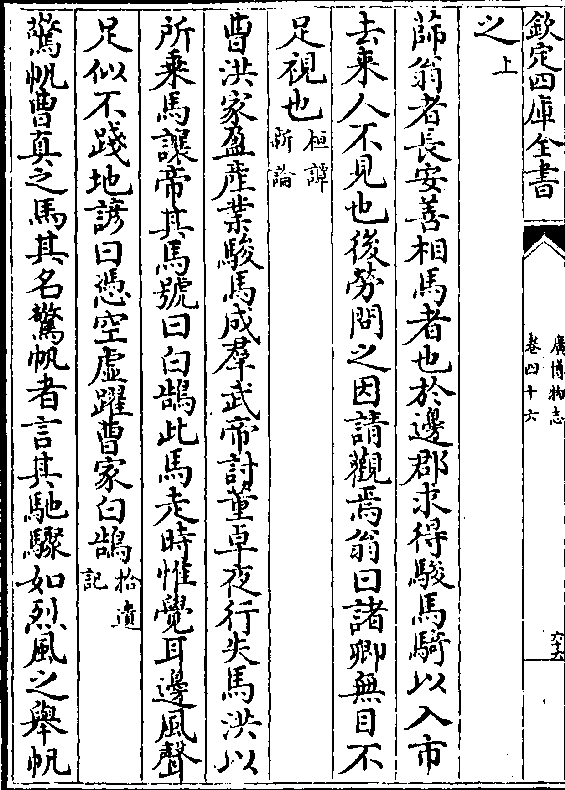 欽定四庫全書
廣博物志
卷四十六
六十六
之上
薛翁者長安善相馬者也於邊郡求得駿馬騎以入市
去來人不見也後勞問之因請觀焉翁曰諸卿無目不
足視也桓譚
新論
曹洪家盈産業駿馬成羣武帝討董卓夜行失馬洪以
所乗馬讓帝其馬號曰白鵠此馬走時惟覺耳邊風聲
足似不踐地諺曰憑空虛躍曹家白鵠拾遺
記
驚帆曹真之馬其名驚帆者言其馳驟如烈風之舉帆